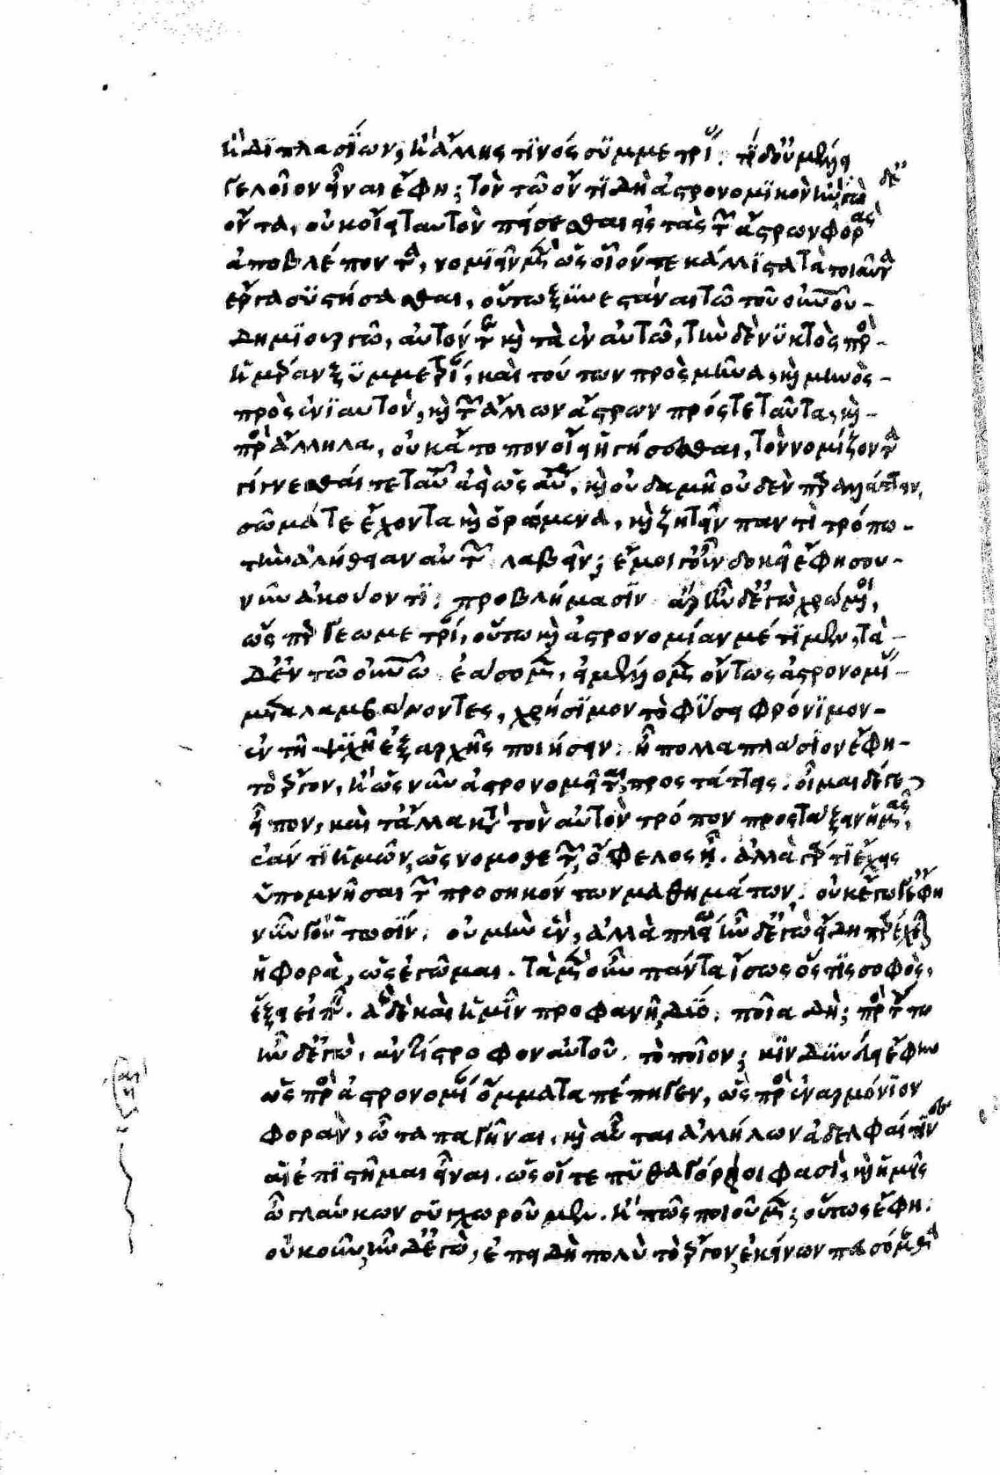 ἢ διπλασίων, ἢ ἄλλης τινός συμμετρί. τί δ' οὐ μέλλει
γελοῖον εἶναι ἔφη; τὸν τῶ ὄντι δὴ ἀστρονομικὸν ἦν δ' ἐγὼ
ὄντα, οὐκ οἴει ταυτὸν πείσεσθαι εἰς τὰς τῶν ἄστρων φορὰς
ἀποβλέποντα, νομιεῖν μὲν ὡς οἷόν τε κάλλιστα τὰ τοιαῦτα
ἔργα συστήσασθαι, οὕτω ξυνεστάναι τῶ τοῦ οὐνοῦ
δημιουργῶ, αὐτόν τε καὶ τὰ ἐν αὐτῶ, τὴν δὲ νυκτὸς πρὸς
ἡμέραν ξυμμετρί, καὶ τούτων πρὸς μῆνα, καὶ μηνὸς
πρὸς ἐνιαυτὸν, καὶ τῶν ἄλλων ἄστρων πρός τε ταῦτα, καὶ
πρὸς ἄλληλα, οὐκ ἄτοπον οἴει ἡγήσεσθαι, τὸν νομίζοντα
γίγνεσθαί τε ταῦτα ἀεὶ ὡσαύτως, καὶ οὐδαμῆ οὐδὲν παραλλάττειν,
σῶμά τε ἔχοντα καὶ ὁρώμενα, καὶ ζητεῖν παντὶ τρόπω
τὴν ἀλήθειαν αὐτῶν λαβεῖν; ἔμοιγ' οὖν δοκεῖ ἔφη σοῦ
νῦν ἀκούοντι. προβλήμασιν ἄρα ἦν δ' ἐγὼ χρώμενοι,
ὥσπερ γεωμετρί, οὕτω καὶ ἀστρονομίαν μέτιμεν, τὰ
δ' ἐν τῶ οὐνῶ ἐάσομεν, εἰ μέλλομεν ὄντως ἀστρονομί
μεταλαμβάνοντες, χρήσιμον τὸ φύσει φρόνιμον
ἐν τῆ ψχῆ ἐξ ἀρχῆς ποιήσειν. ἦ πολλαπλάσιον ἔφη
τὸ ἔργον, ἢ ὡς νῦν ἀστρονομεῖται προστάττεις. οἶμαι δέ γε
εἶπον, καὶ τἄλλα κατὰ τὸν αὐτὸν τρόπον προστάξειν ἡμᾶς,
ἐάν τι ἡμῶν ὡς νομοθετῶν ὄφελος ἦ. ἀλλὰ γάρ τι ἔχεις
ὑπομνῆσαι τῶν προσηκόντων μαθημάτων. οὐκ ἔγωγ' ἔφη
νῦν γ' οὑτωσίν. οὐ μὴν ἓν, ἀλλὰ πλείω ἦν δ' ἐγὼ εἴδη παρέχεται
ἡ φορὰ, ὡς ἐγῶμαι. τὰ μὲν οὖν πάντα ἴσως ὅστις σοφὸς,
ἕξει εἰπεῖν. ἃ δὲ καὶ ἡμῖν προφανῆ, δύο. ποῖα δὴ; πρὸς τούτω
ἦν δ' ἐγὼ, ἀντίστροφον αὐτοῦ. τὸ ποῖον; κινδυνεύει ἔφην
ὡς πρὸς ἀστρονομί ὄμματα πέπηγεν, ὣς πρὸς ἐναρμόνιον
φορὰν, ὦτα παγῆναι, καὶ αὗται ἀλλήλων ἀδελφαί τινες
αἱ ἐπιστῆμαι εἶναι. ὡς οἵ τε πυθαγόρειοι φασὶ, καὶ ἡμεῖς
ὦ γλαύκων συγχωροῦμεν. ἢ πῶς ποιοῦμεν; οὕτως ἔφη.
οὐκοῦν ἦν δ' ἐγὼ, ἐπειδὴ πολὺ τὸ ἔργον, ἐκείνων πευσόμεθα